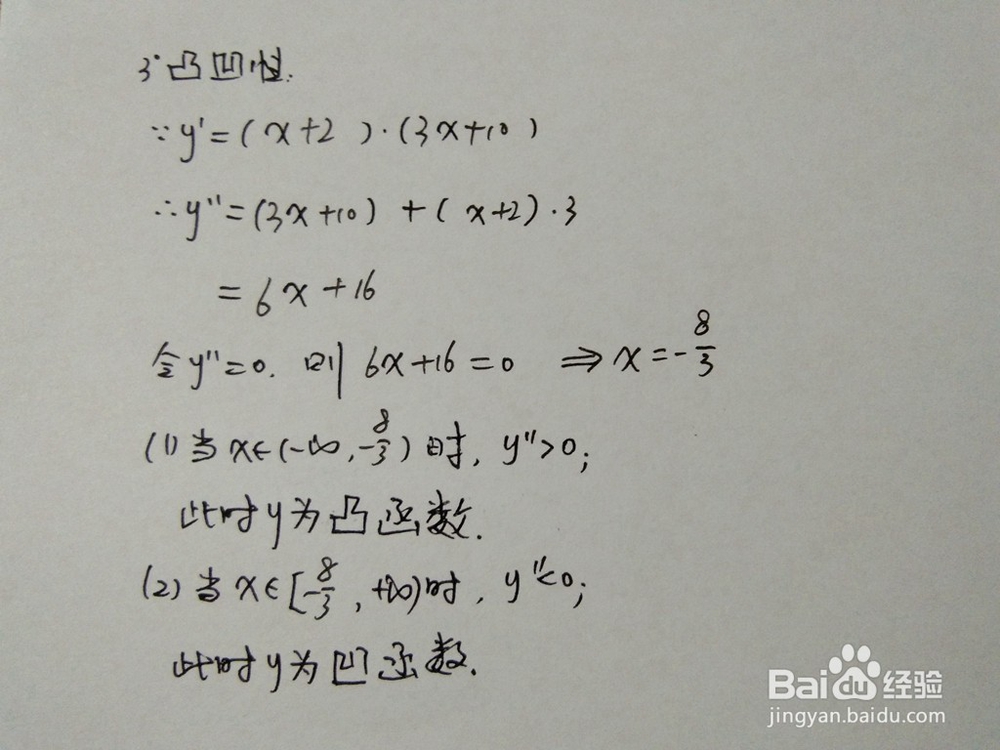 3°凸凹性.
∵y'=(x+2)·(3x+10)
∴y''=(3x+10)+(x+2)·3
=6x+16
令y''=0.则6x+16=0 ⇒x=-8/3
(1)当x∈(-∞,-8/3)时,y''>0;
此时y为凸函数.
(2)当x∈[-8/3,+∞)时,y''<0;
此时y为凹函数.
Baidu经验
jingyan.baidu.com